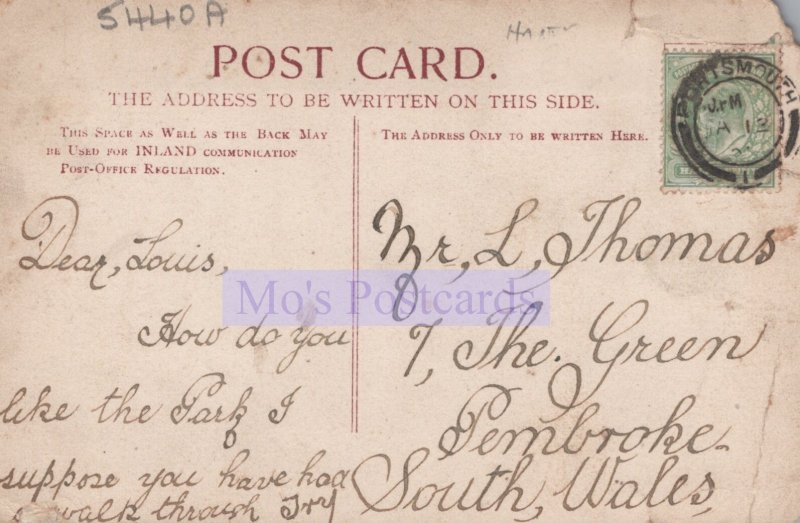 5440A
POST CARD.
THE ADDRESS TO BE WRITTEN ON THIS SIDE.
THIS SPACE AS WELL AS THE BACK MAY
BE USED FOR INLAND COMMUNICATION
POST-OFFICE REGULATION.
THE ADDRESS ONLY TO BE WRITTEN HERE.
PORTSMOUTH
Dear, Louis,
How do you
like the Park I
suppose you have had
a walk through
Mr, L, Thomas
7, The. Green
Pembroke
South, Wales,
Mo's Postcards